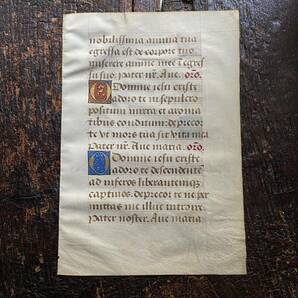 nobilissima anima tua
egressa est de corpore tuo
miserere anime mee in egres
su suo. Pater nr. Aue. oro.
O Domine iesu criste
adoro te in sepulcro
positum mirra et aroma
tibus conditum: deprecor
te ut mors tua sit vita mea
Pater nr. Aue maria. oro.
O Domine iesu criste
adoro te descendente
ad inferos liberantemq
captiuos. deprecor te ne per
mittas me illuc introire
Pater noster. Aue maria